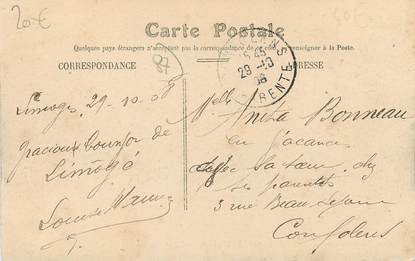 20€
60€
Carte Postale
Quelques pays étrangers n'acceptent pas la correspondance de ce renseigner à la Poste.
CORRESPONDANCE
87
ADRESSE
29-10
08
Limoges 29-10-08
gracieux bonjour de
Limoges
Louise
Melle Anita Bonneau
en vacances
avec sa sœur chez
ses parents
3 rue Beau Séjour
Confolens